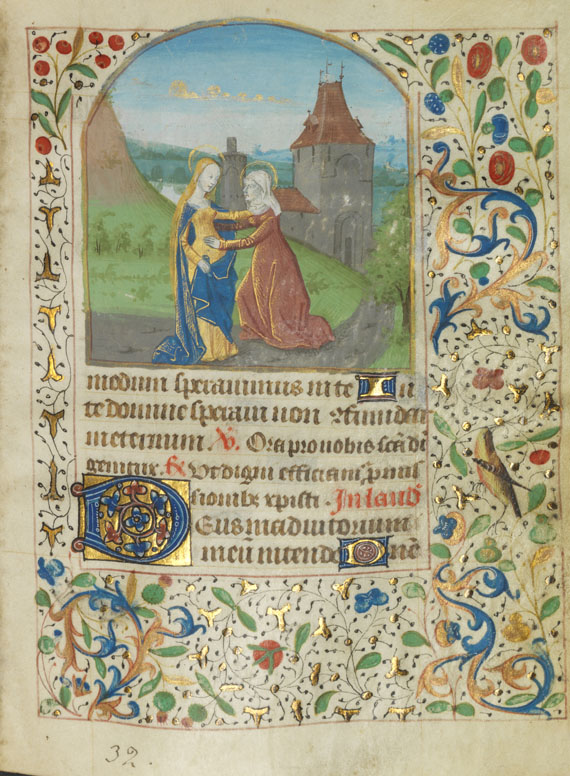 modum speravimus in te In
te domine speravi non confundar
in eternum V. Ora pro nobis sca dei
genitrix R Ut digni efficiam promis
sionibz xpisti. In laud
Deus in adiutorium
meu intende Dne
32.